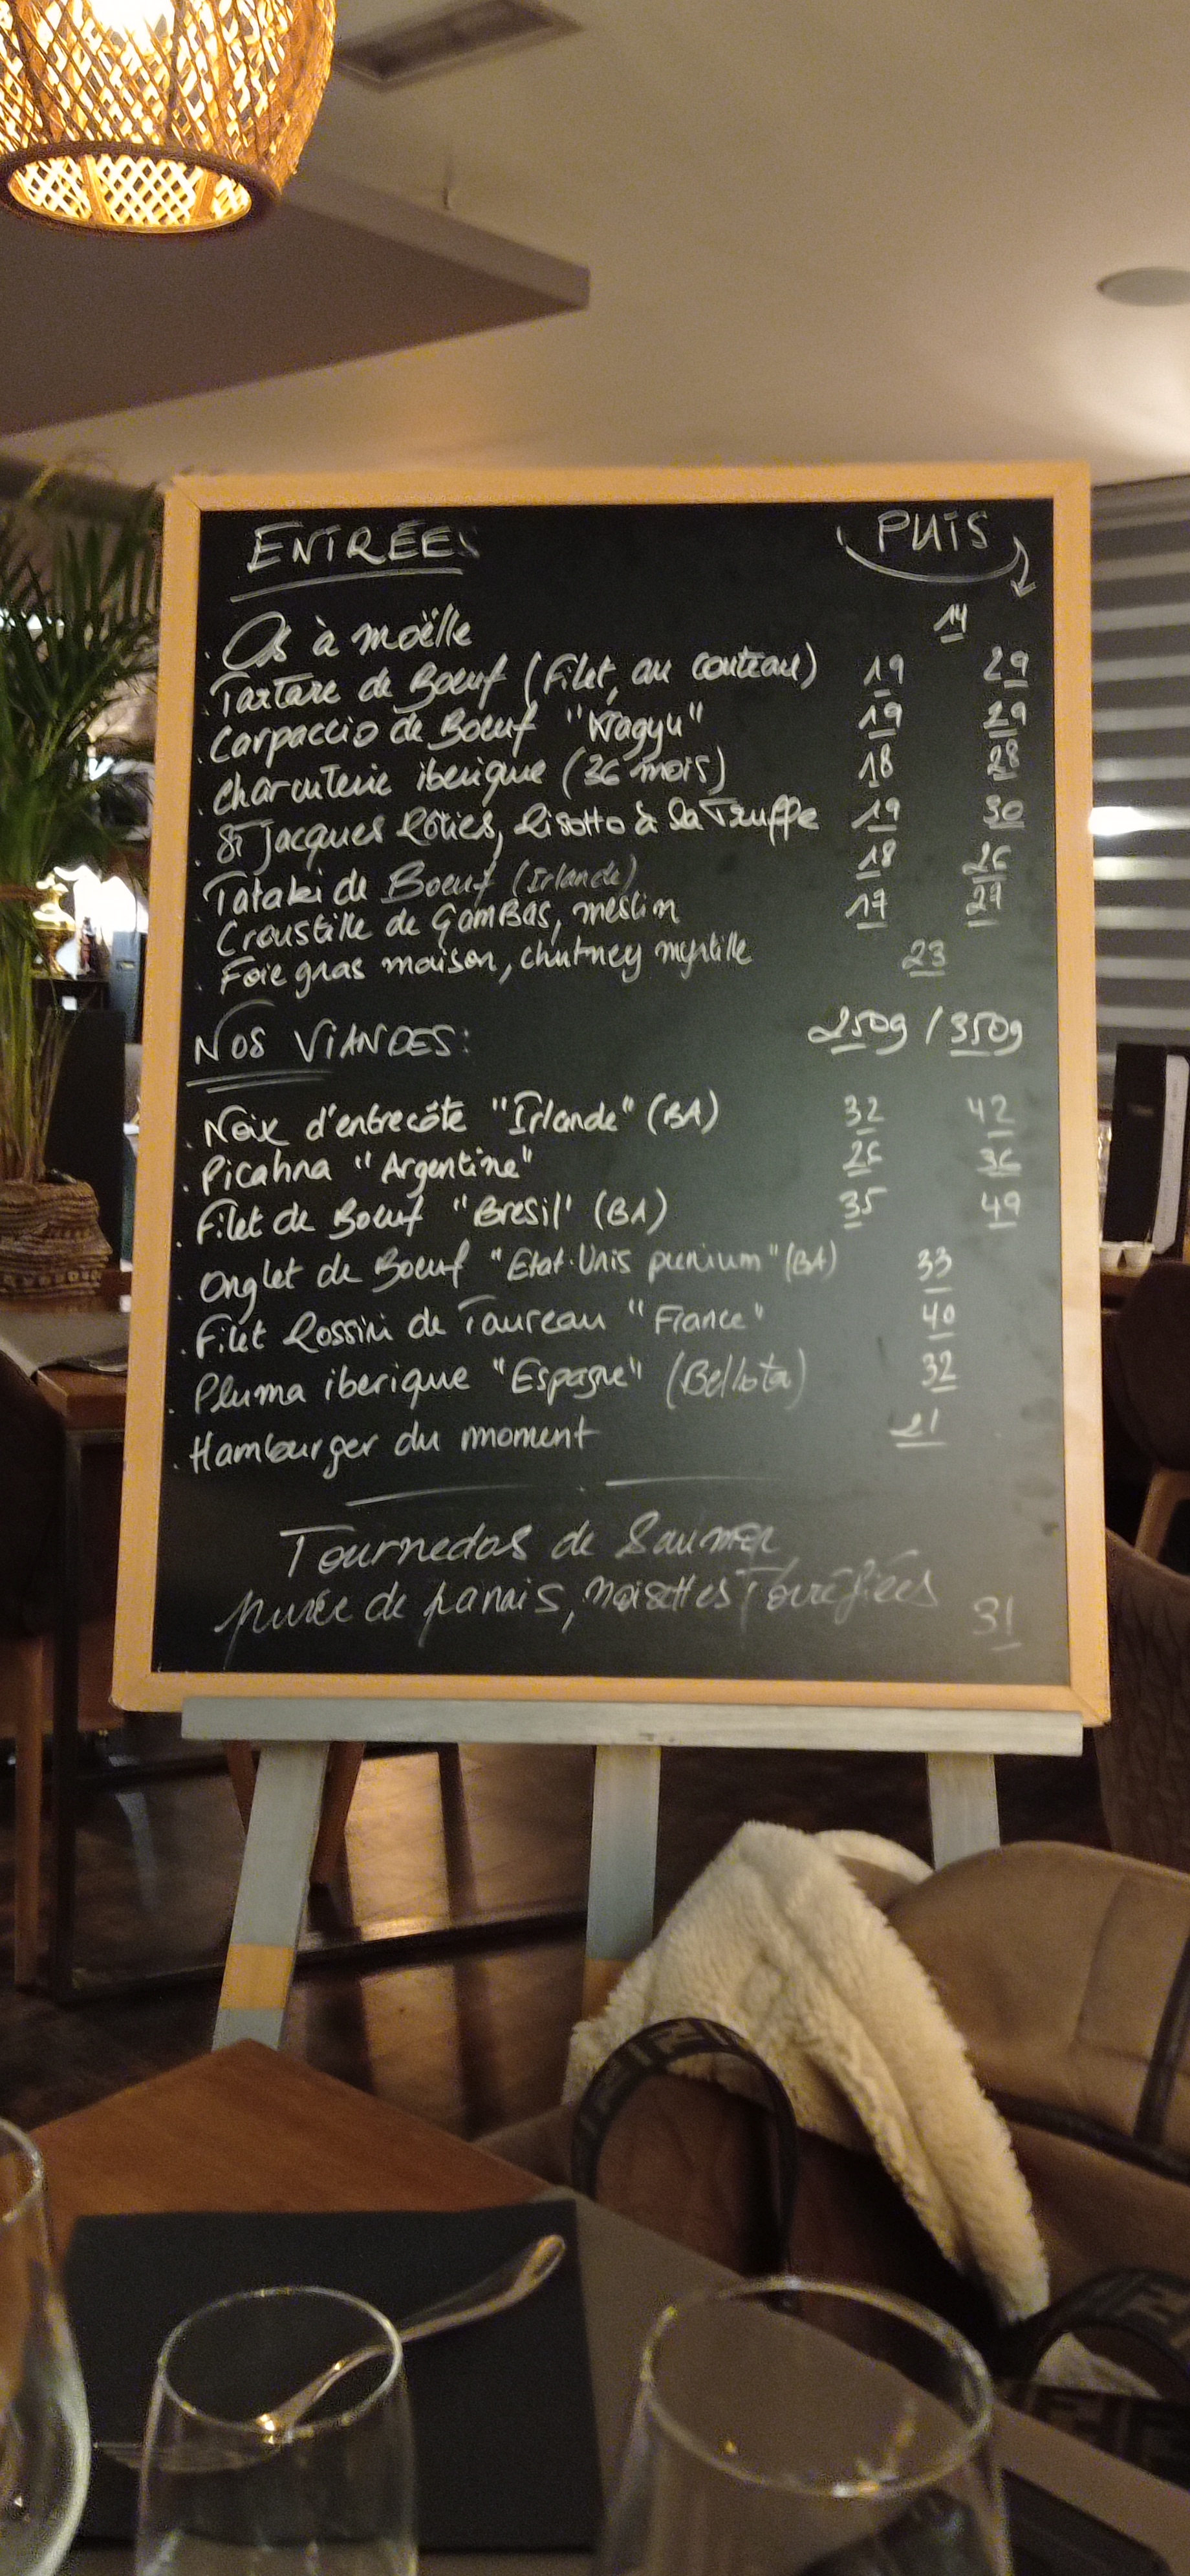 ENTRÉES PUIS
. Os à moëlle 14
. Tartare de Boeuf (Filet, au couteau) 19 29
. Carpaccio de Boeuf "Wagyu" 19 29
. Charcuterie iberique (36 mois) 18 28
. St Jacques Rôties, Risotto à la Truffe 19 30
. Tataki de Boeuf (Irlande) 18 26
. Croustille de GamBas, meslin 17 27
. Foie gras maison, chutney myrtille 23
NOS VIANDES: 250g / 350g
. Noix d'entrecôte "Irlande" (BA) 32 42
. Picahna "Argentine" 26 36
. Filet de Boeuf "Bresil" (BA) 35 49
. Onglet de Boeuf "Etat-Unis premium" (BA) 33
. Filet Rossini de Taureau "France" 40
. Pluma iberique "Espagne" (Bellota) 32
. Hamburger du moment 21
Tournedos de Saumon
purée de panais, noisettes Torréfiées 31